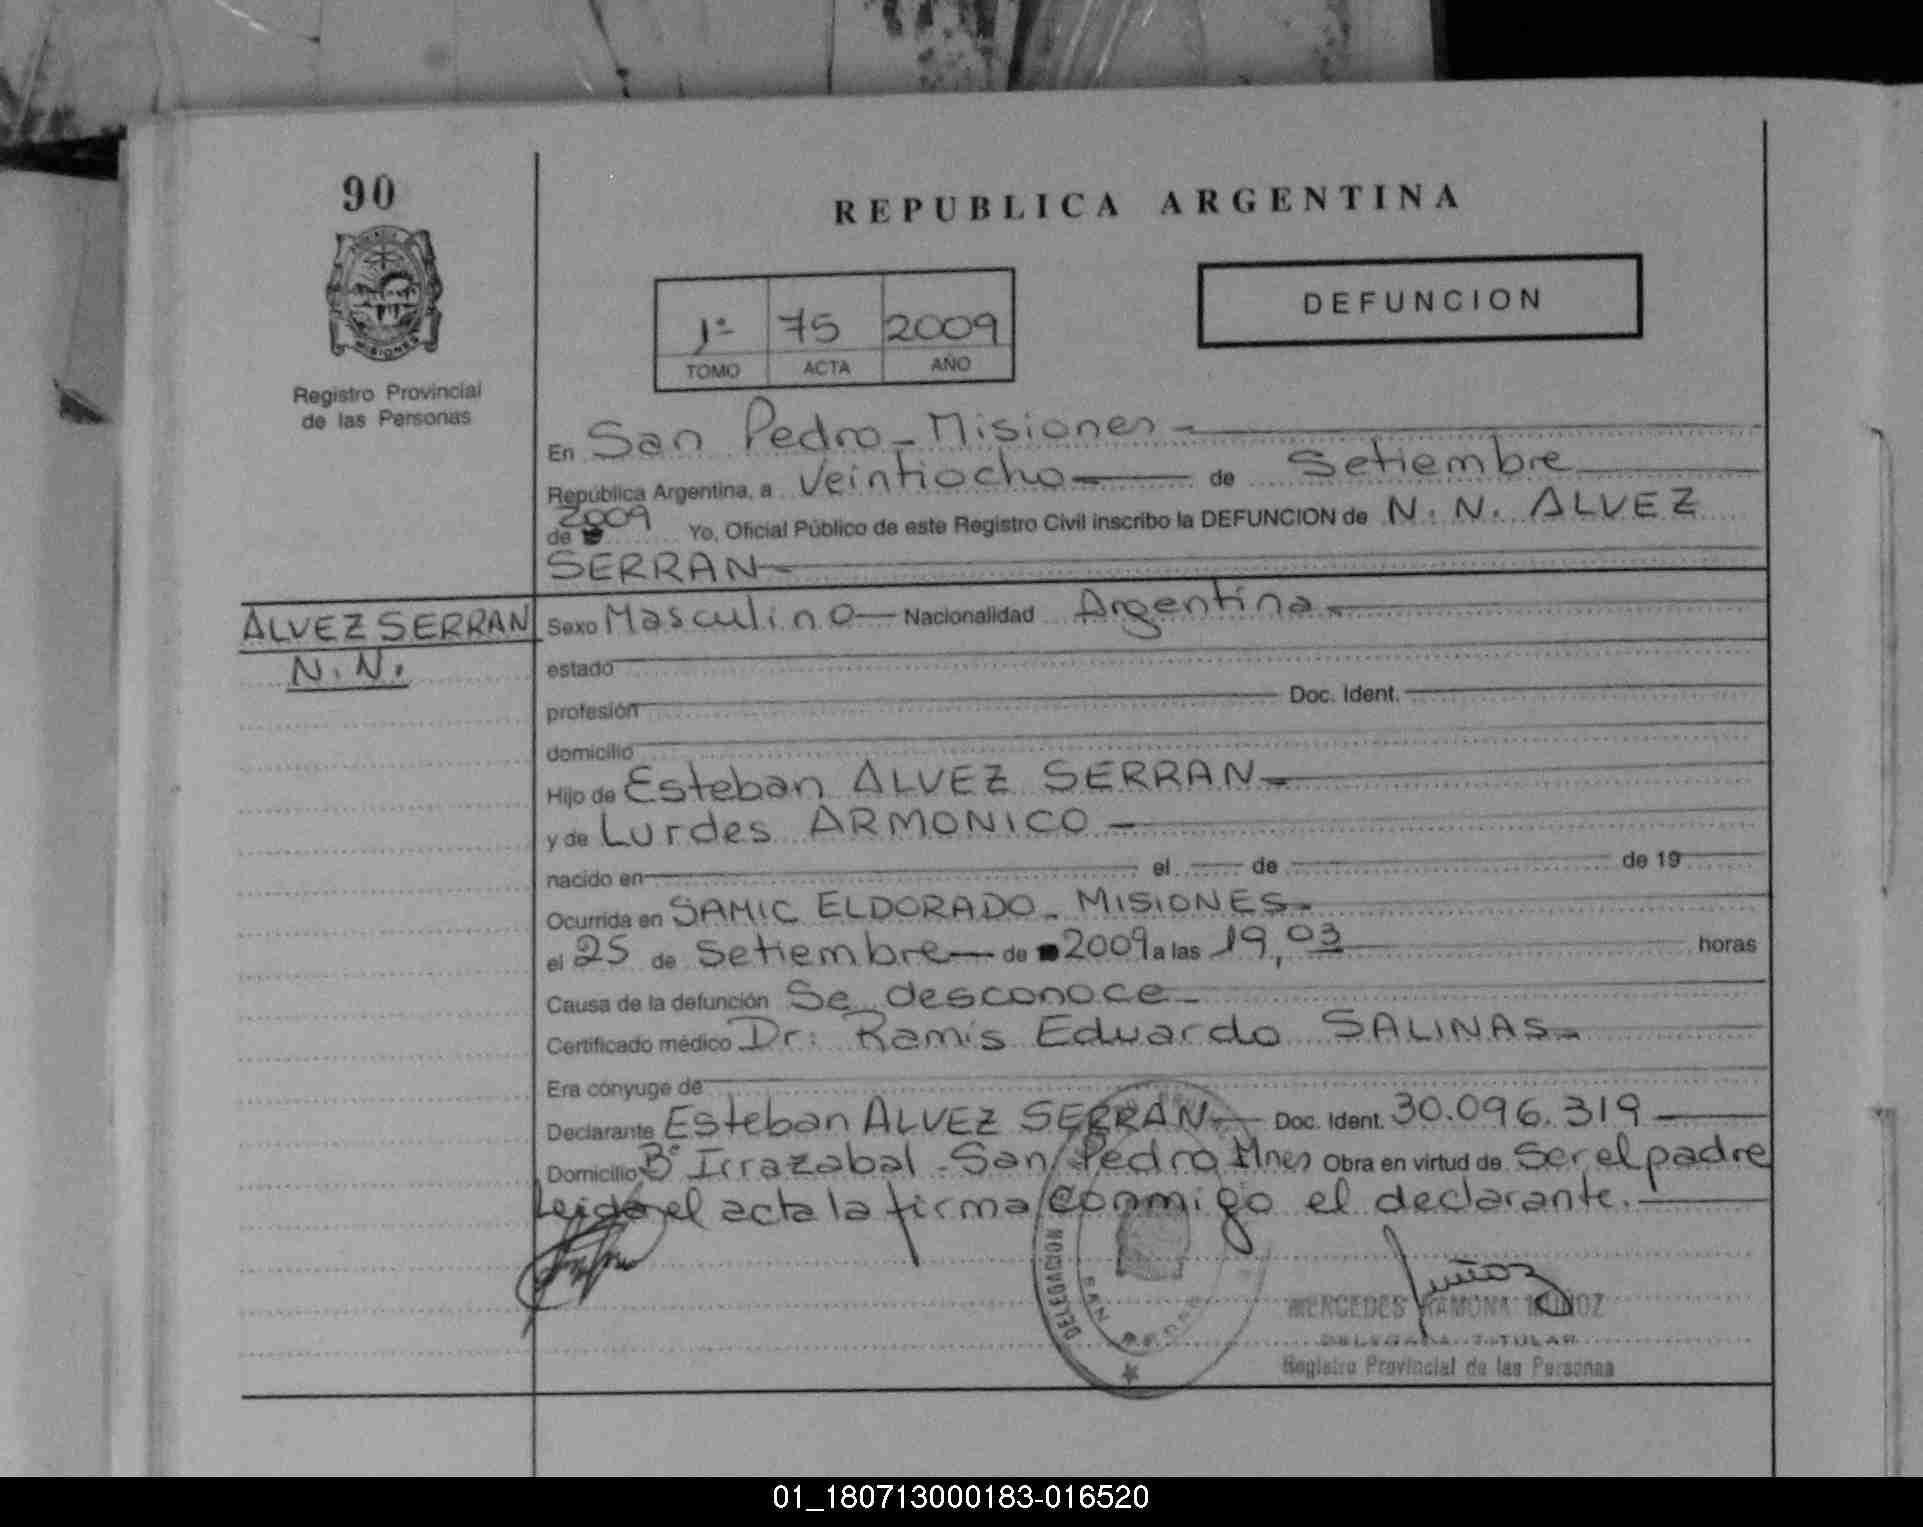 90
REPUBLICA ARGENTINA
MISIONES
Registro Provincial
de las Personas
1º 75 2009
TOMO ACTA AÑO
DEFUNCION
En San Pedro - Misiones
República Argentina, a Veintiocho de Setiembre
de 2009 Yo, Oficial Público de este Registro Civil inscribo la DEFUNCION de N. N. ALVEZ
SERRAN
ALVEZ SERRAN
N. N.
Sexo Masculino Nacionalidad Argentina
estado
profesión Doc. Ident.
domicilio
Hijo de Esteban ALVEZ SERRAN
y de Lurdes ARMONICO
nacido en el de de 19
Ocurrida en SAMIC ELDORADO - MISIONES
el 25 de Setiembre de 2009 a las 19,03 horas
Causa de la defunción Se desconoce
Certificado médico Dr: Ramis Eduardo SALINAS
Era cónyuge de
Declarante Esteban ALVEZ SERRAN Doc. Ident. 30.096.319
Domicilio Bº Irrazabal - San Pedro Mnes Obra en virtud de ser el padre
Leida el acta la firma conmigo el declarante.
DELEGACION
SAN PEDRO
Muñoz
MERCEDES RAMONA MUÑOZ
DELEGADA TITULAR
Registro Provincial de las Personas
01_180713000183-016520